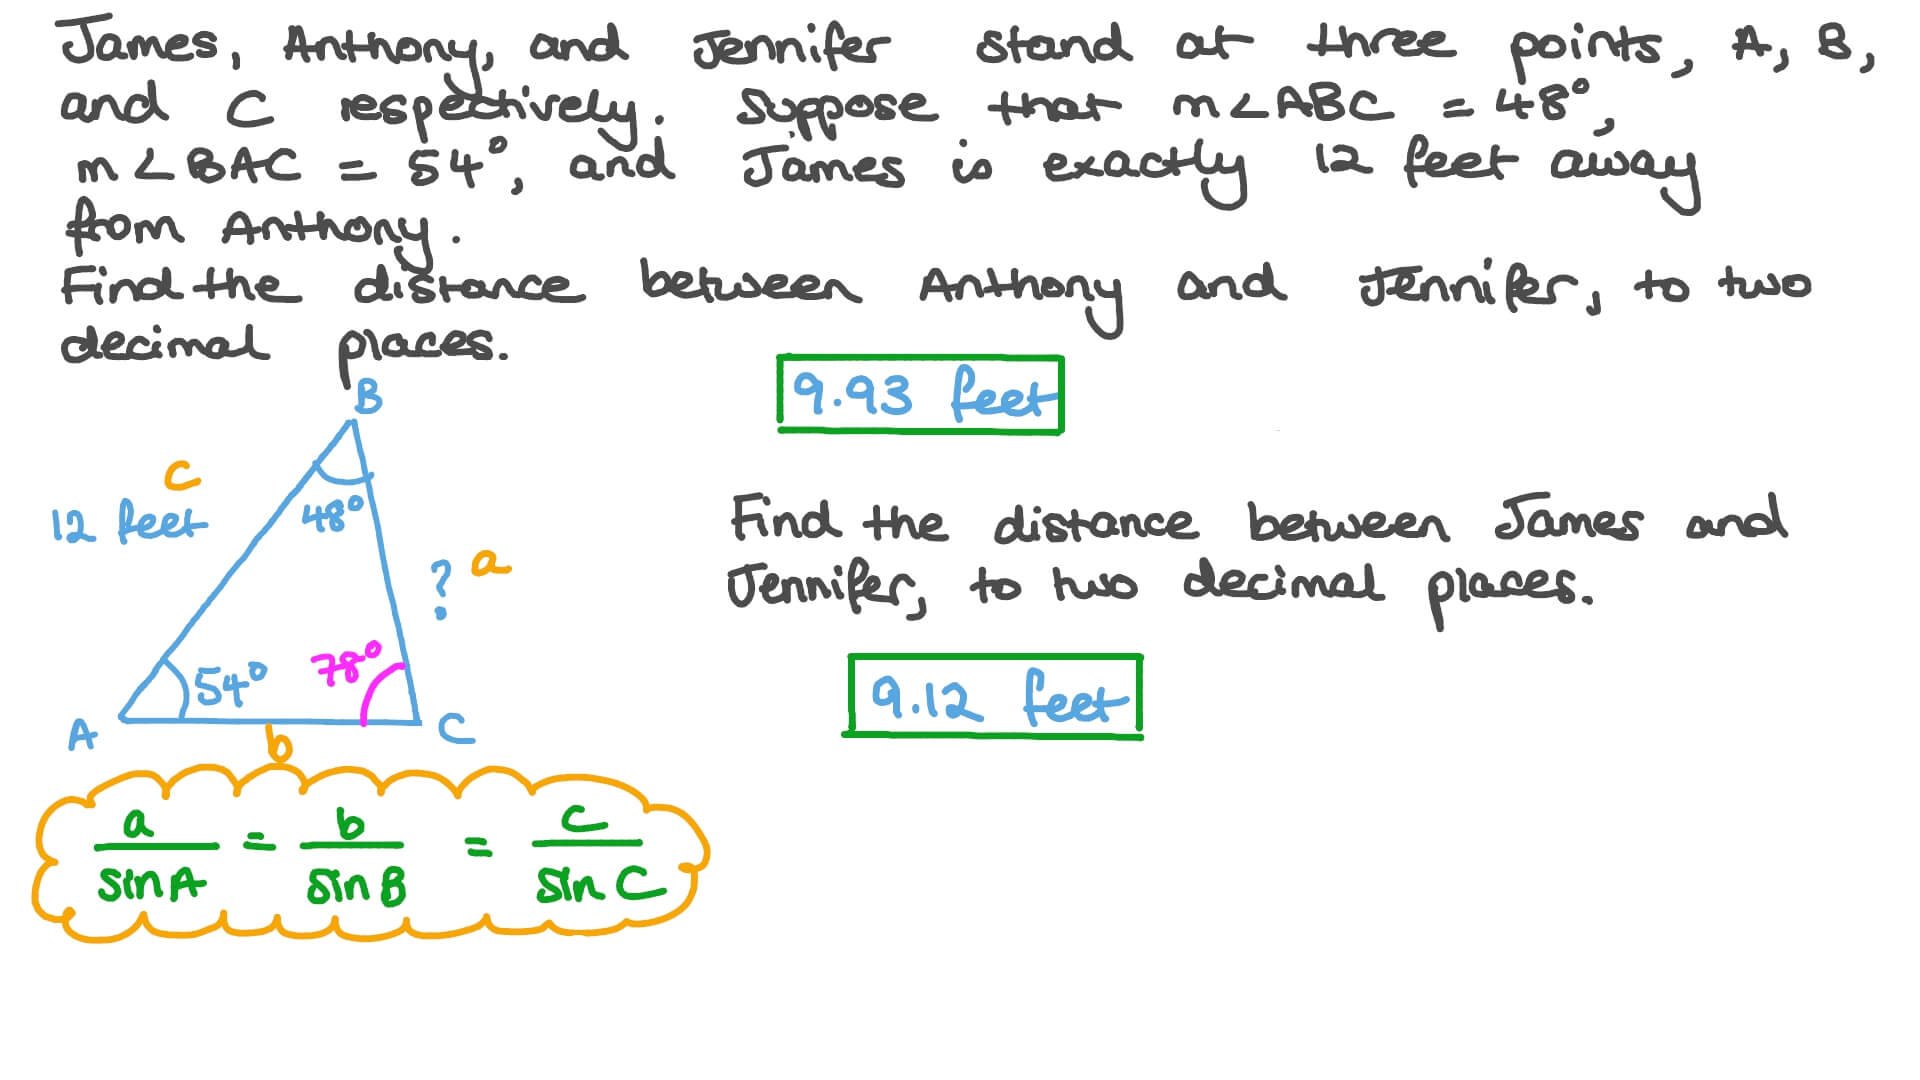 James, Anthony, and Jennifer stand at three points, A, B,
and C respectively. Suppose that m∠ABC = 48°,
m∠BAC = 54°, and James is exactly 12 feet away
from Anthony.
Find the distance between Anthony and Jennifer, to two
decimal places.
9.93 feet
B
c
12 feet
48°
? a
54°
78°
A
C
b
Find the distance between James and
Jennifer, to two decimal places.
9.12 feet
a/sin A = b/sin B = c/sin C